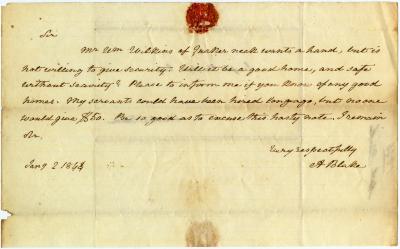 Sir
Mr Wm Wilkins of Quaker neck wants a hand, but is
not willing to give security. Will it be a good home, and safe
without security? Please to inform me if you know of any good
homes. My servants could have been hired long ago, but no one
would give $50. Be so good as to excuse this hasty note. I remain
Sr.
Very respectfully
A Blake
Jany 2 1843